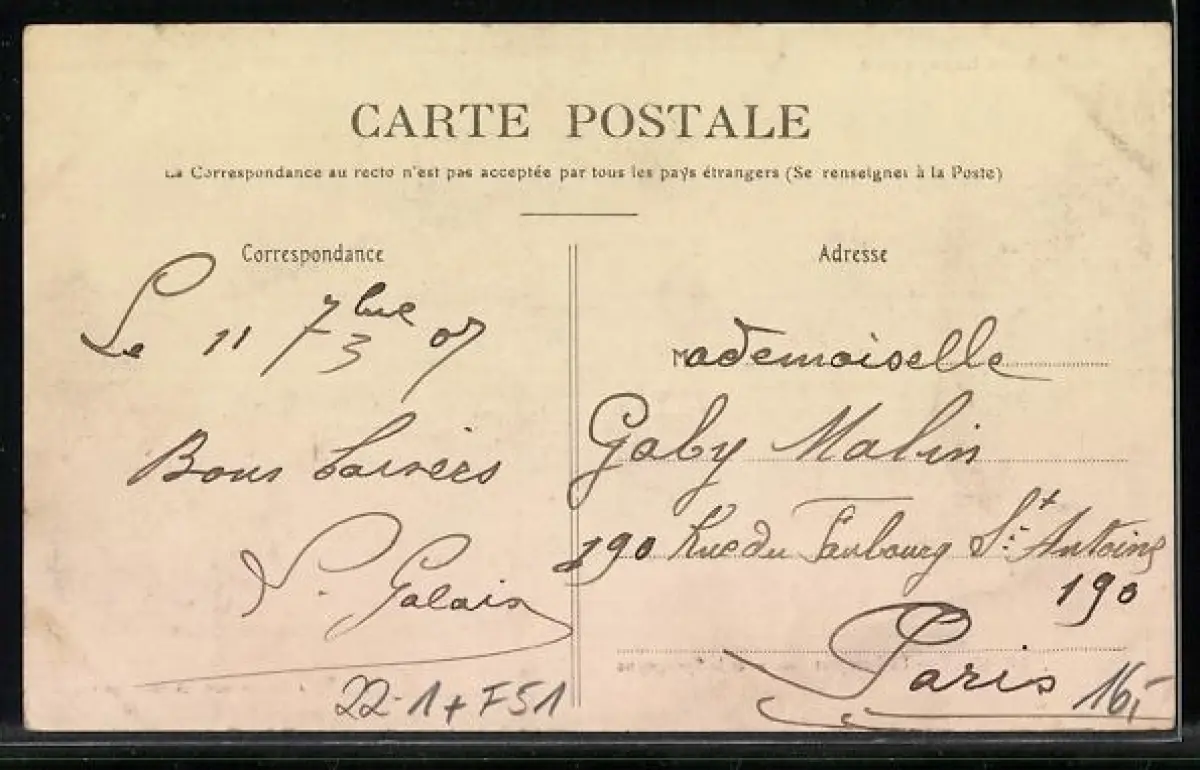 CARTE POSTALE
La Correspondance au recto n'est pas acceptée par tous les pays étrangers (Se renseigner à la Poste)
Correspondance
Le 11 7bre 07
3
Bons baisers
Galain
22-1 + F51
Adresse
Mademoiselle
Gaby Malin
190 Rue du Faubourg St Antoine
190
Paris
16,-